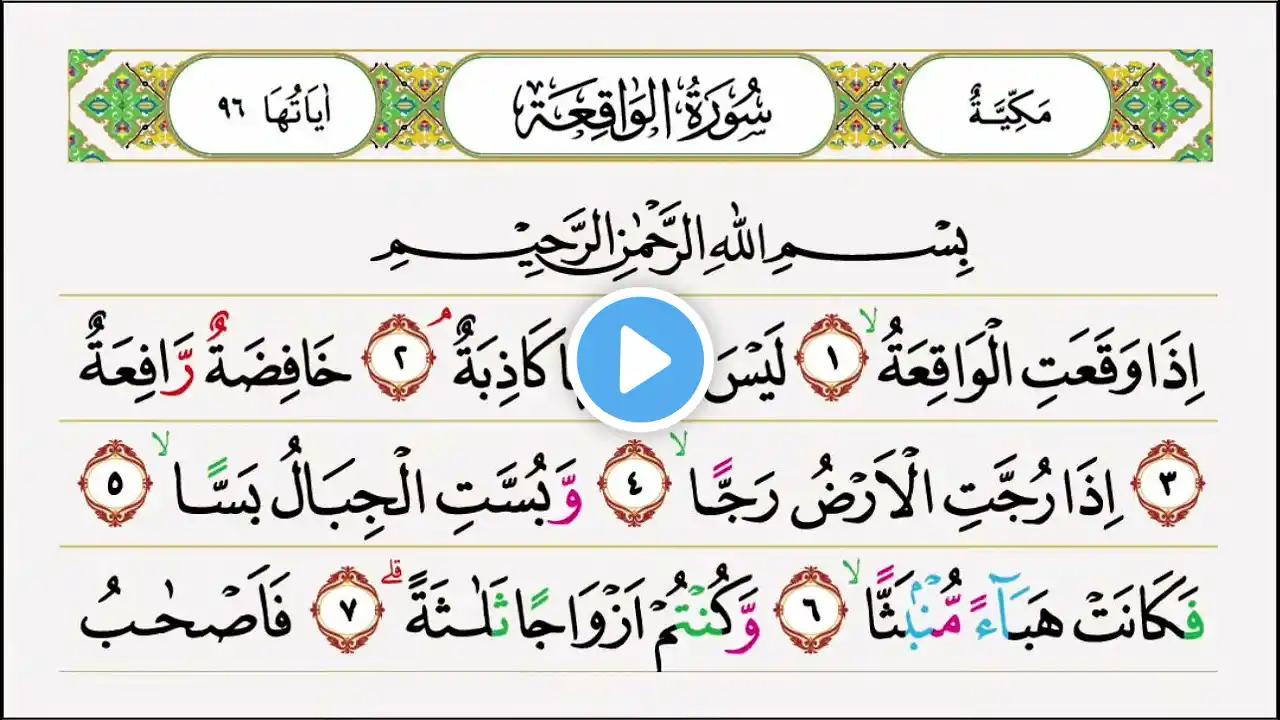 مَكِّيَّةٌ سُوْرَةُ الْوَاقِعَة اٰيَاتُهَا ٩٦
بِسْمِ اللهِ الرَّحْمٰنِ الرَّحِيْمِ
اِذَا وَقَعَتِ الْوَاقِعَةُۙ ١ لَيْسَ كَاذِبَةٌ ۘ ٢ خَافِضَةٌ رَّافِعَةٌ
٣ اِذَا رُجَّتِ الْاَرْضُ رَجًّاۙ ٤ وَّبُسَّتِ الْجِبَالُ بَسًّاۙ ٥
فَكَانَتْ هَبَاۤءً مُّنْۢبَثًّاۙ ٦ وَّكُنْتُمْ اَزْوَاجًا ثَلٰثَةً ۗ ٧ فَاَصْحٰبُ